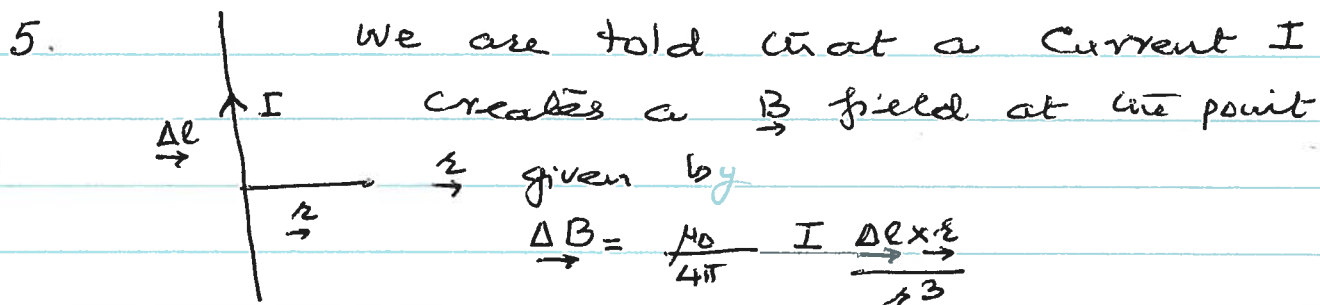 5. We are told that a Current I
I creates a B field at the point
Δl
r given by
r
ΔB = μ0/4π I Δl × r/r3